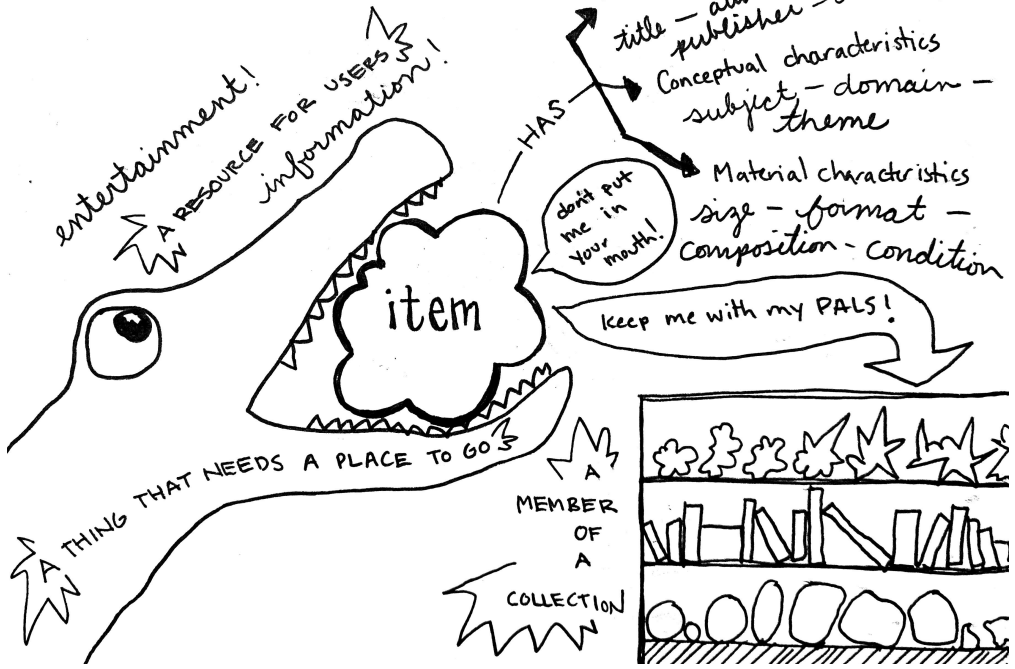 entertainment!
A RESOURCE FOR USERS
information!
HAS
title —
publisher —
Conceptual characteristics
subject — domain —
theme
Material characteristics
size — format —
composition - condition
don't put
me in
your
mouth!
item
keep me with my PALS!
A THING THAT NEEDS A PLACE TO GO
A
MEMBER
OF
A
COLLECTION